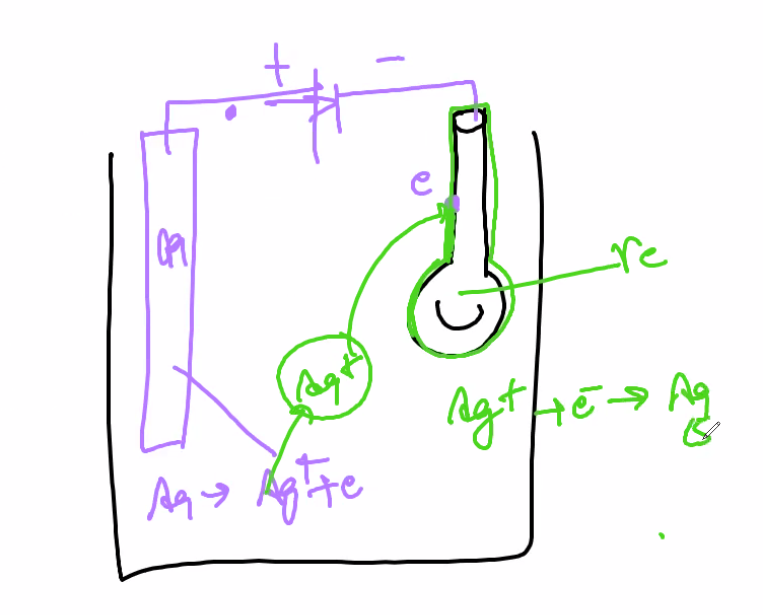 + -
e
Ag
re
Ag+
Ag+ + e- → Ag
(s)
Ag → Ag+ + e